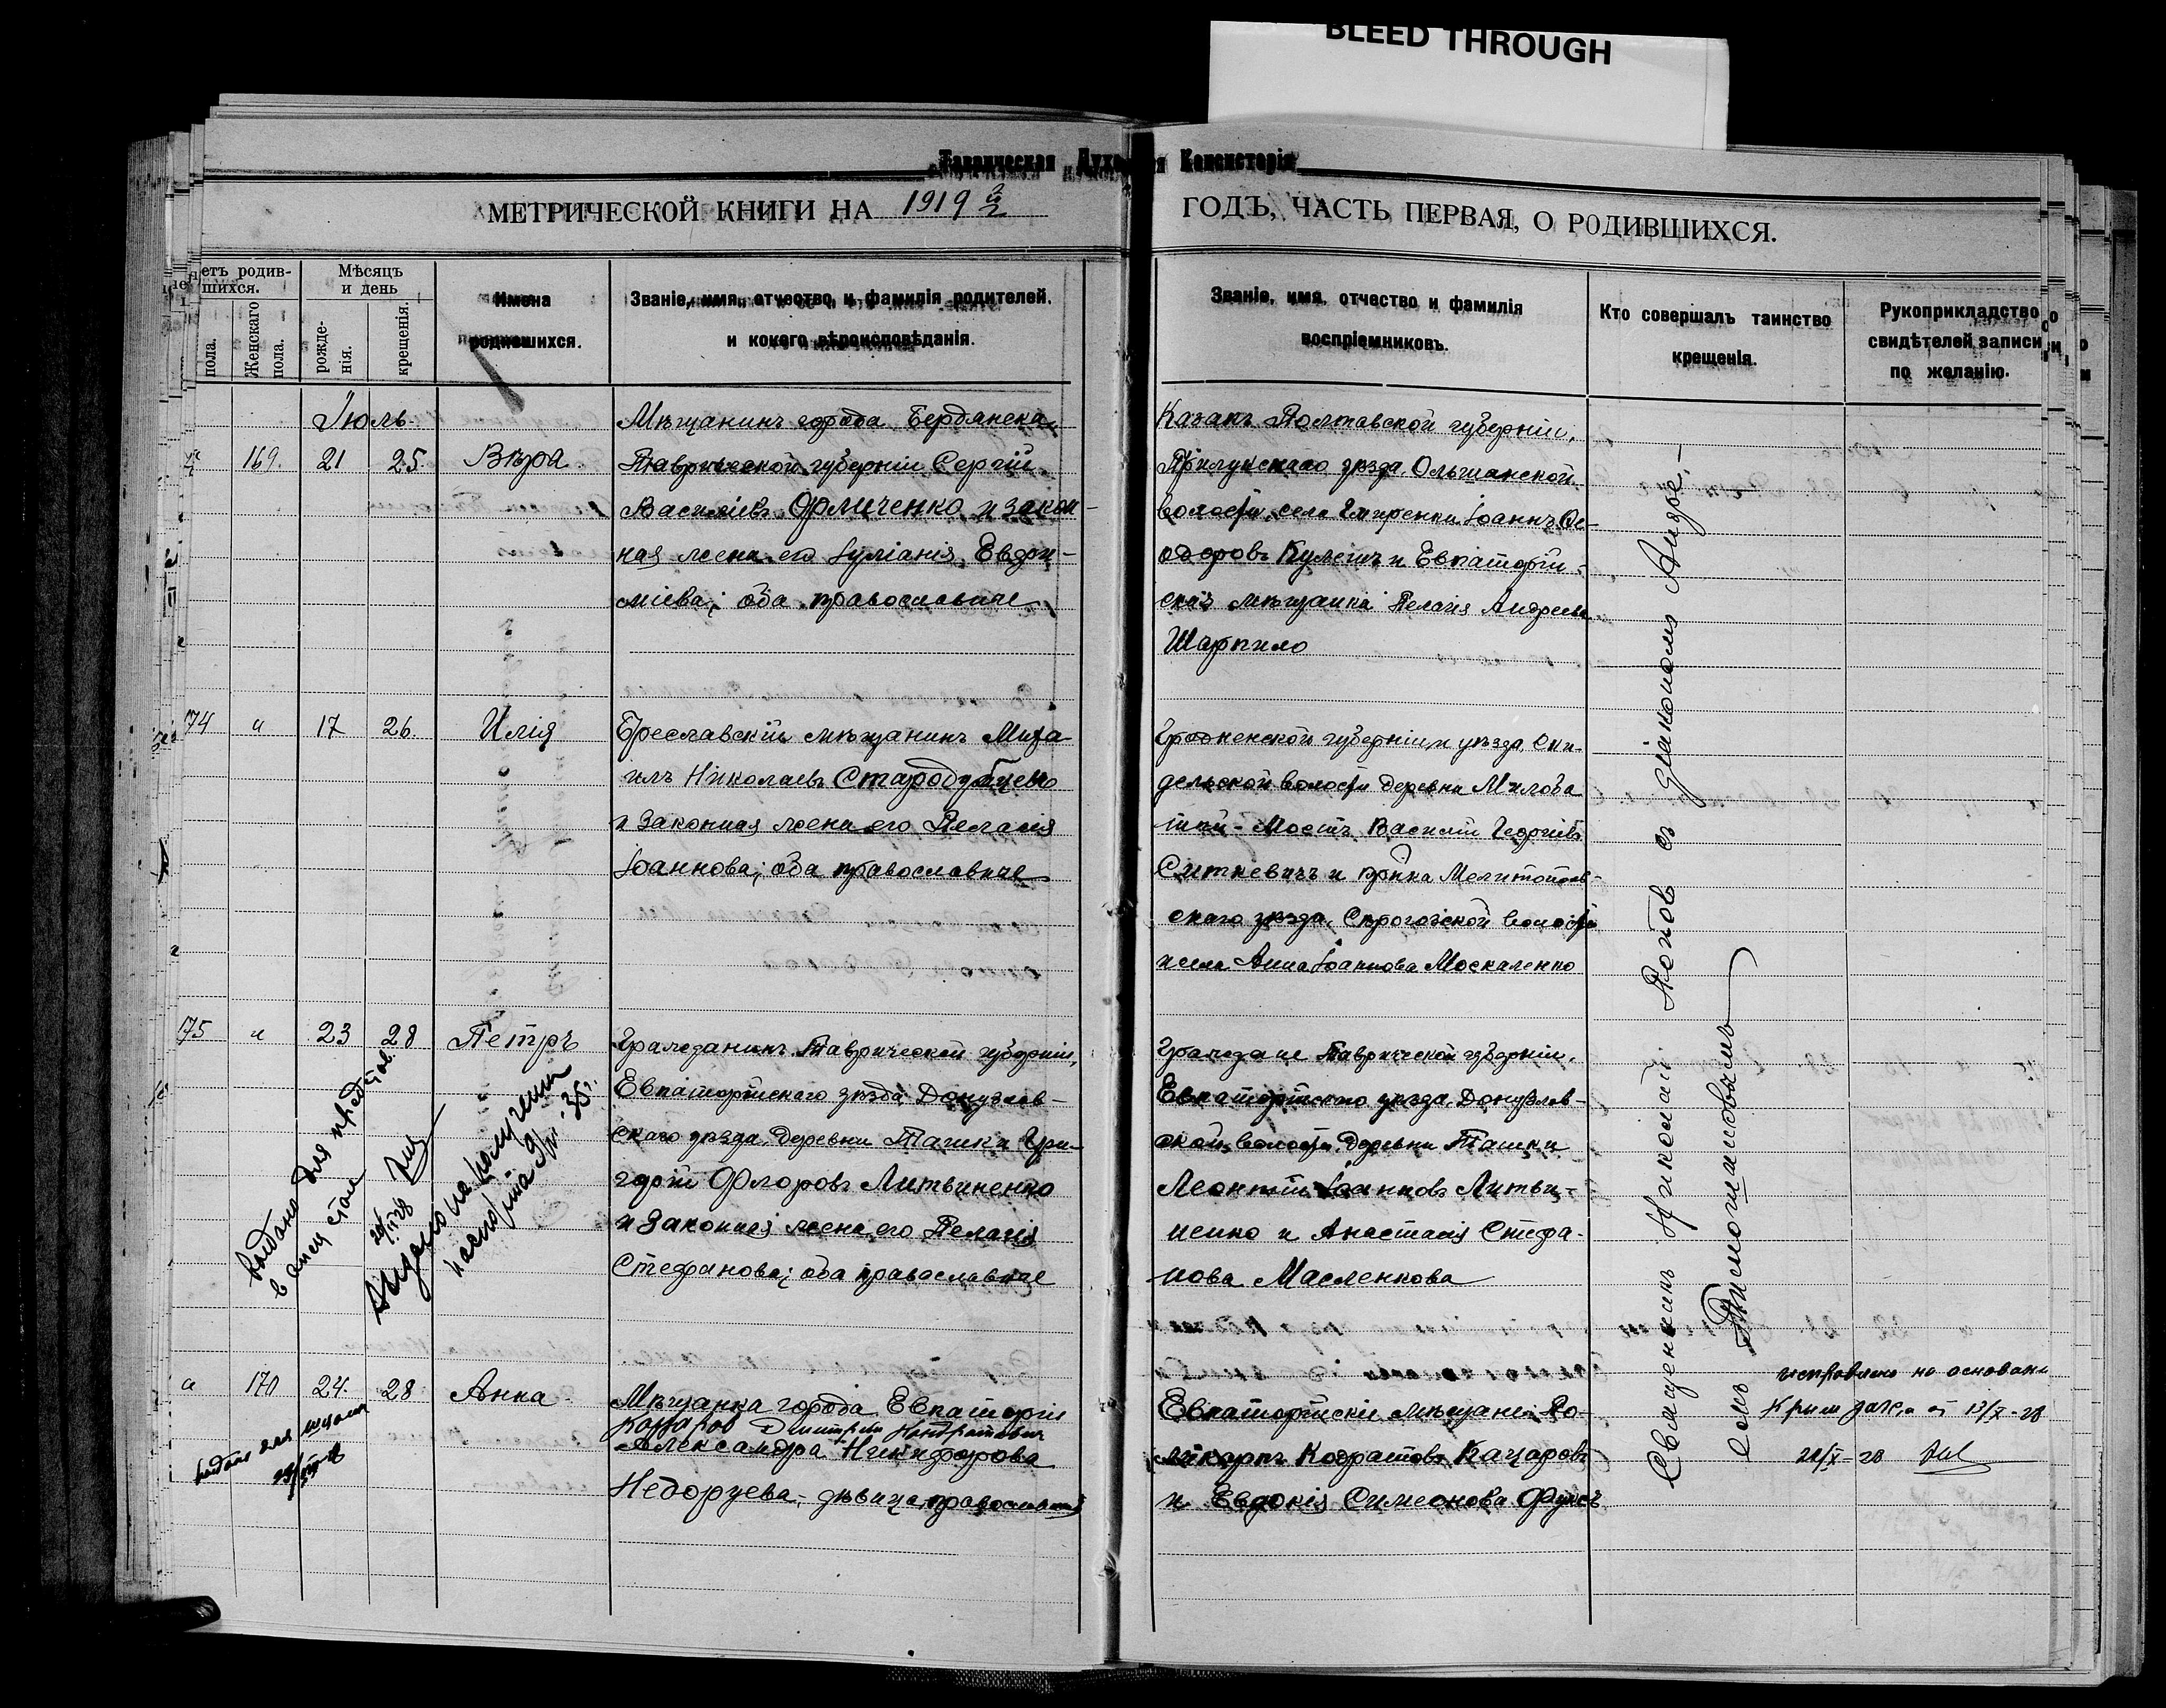 BLEED THROUGH
Таврическая Духовная Консисторія
МЕТРИЧЕСКОЙ КНИГИ НА 1919 г.
ГОДЪ, ЧАСТЬ ПЕРВАЯ, О РОДИВШИХСЯ.
етъ родив-
шихся.
пола.
Женскаго
пола.
Мѣсяцъ
и день
рожде-
нія.
крещенія.
Имена
родившихся.
Званіе, имя, отчество и фамилія родителей,
и кокого вѣроисповѣданія.
Званіе, имя, отчество и фамилія
воспріемниковъ.
Кто совершалъ таинство
крещенія.
Рукоприкладство
свидѣтелей записи
по желанію.
Іюль.
169. 21 25. Вѣра.
Мѣщанинъ города Бердянска
Таврической губерніи Сергій
Василіевъ и закон-
ная жена его Іуліанія Евфи-
міева; оба православные
Казакъ Полтавской губерніи,
Прилукскаго уѣзда, Ольшанской
волости, села Іоаннъ Ѳе-
одоровъ Кулешъ и Евпаторій-
ская мѣщанка Пелагія Андреева
Шарпило
174 " 17 26. Илія
Береславскій мѣщанинъ Миха-
илъ Николаевъ Стародубцевъ
и законная жена его Пелагія
Іоаннова; оба православные
Гродненской губерніи и уѣзда, Ски-
дельской волости деревни
Мостъ Василій Георгіевъ
Ситкевичъ и кр-нка Мелитополь-
скаго уѣзда, Сѣрогозской волости
и села Анна Іоаннова Москаленко
175 " 23 28 Петръ
Гражданинъ Таврической губерніи,
Евпаторійскаго уѣзда Донузлав-
скаго уѣзда, деревни Ташки Гри-
горій Флоровъ Литвиненко
и законная жена его Пелагія
Стефанова; оба православные
Граждане Таврической губерніи,
Евпаторійскаго уѣзда, Донузлав-
ской волости, деревни Ташки
Леонтій Іоанновъ Литви-
ненко и Анастасія Стефа-
нова Масленкова
Выдано для представ.
в стол
Выдано на получение
паспорта 35 г.
" 170 24. 28 Анна
Мѣщанка города Евпаторіи
Кацаров Димитрий Кондратович
Александра Никифорова
дѣвица, православная
Евпаторійскіе мѣщане: По-
ликарпъ Кодратовъ Кацаровъ
и Евдокія Симеонова Фуксъ
Священникъ Николай Попов съ діакономъ
исправлено на основани
Крым от 13/X-28